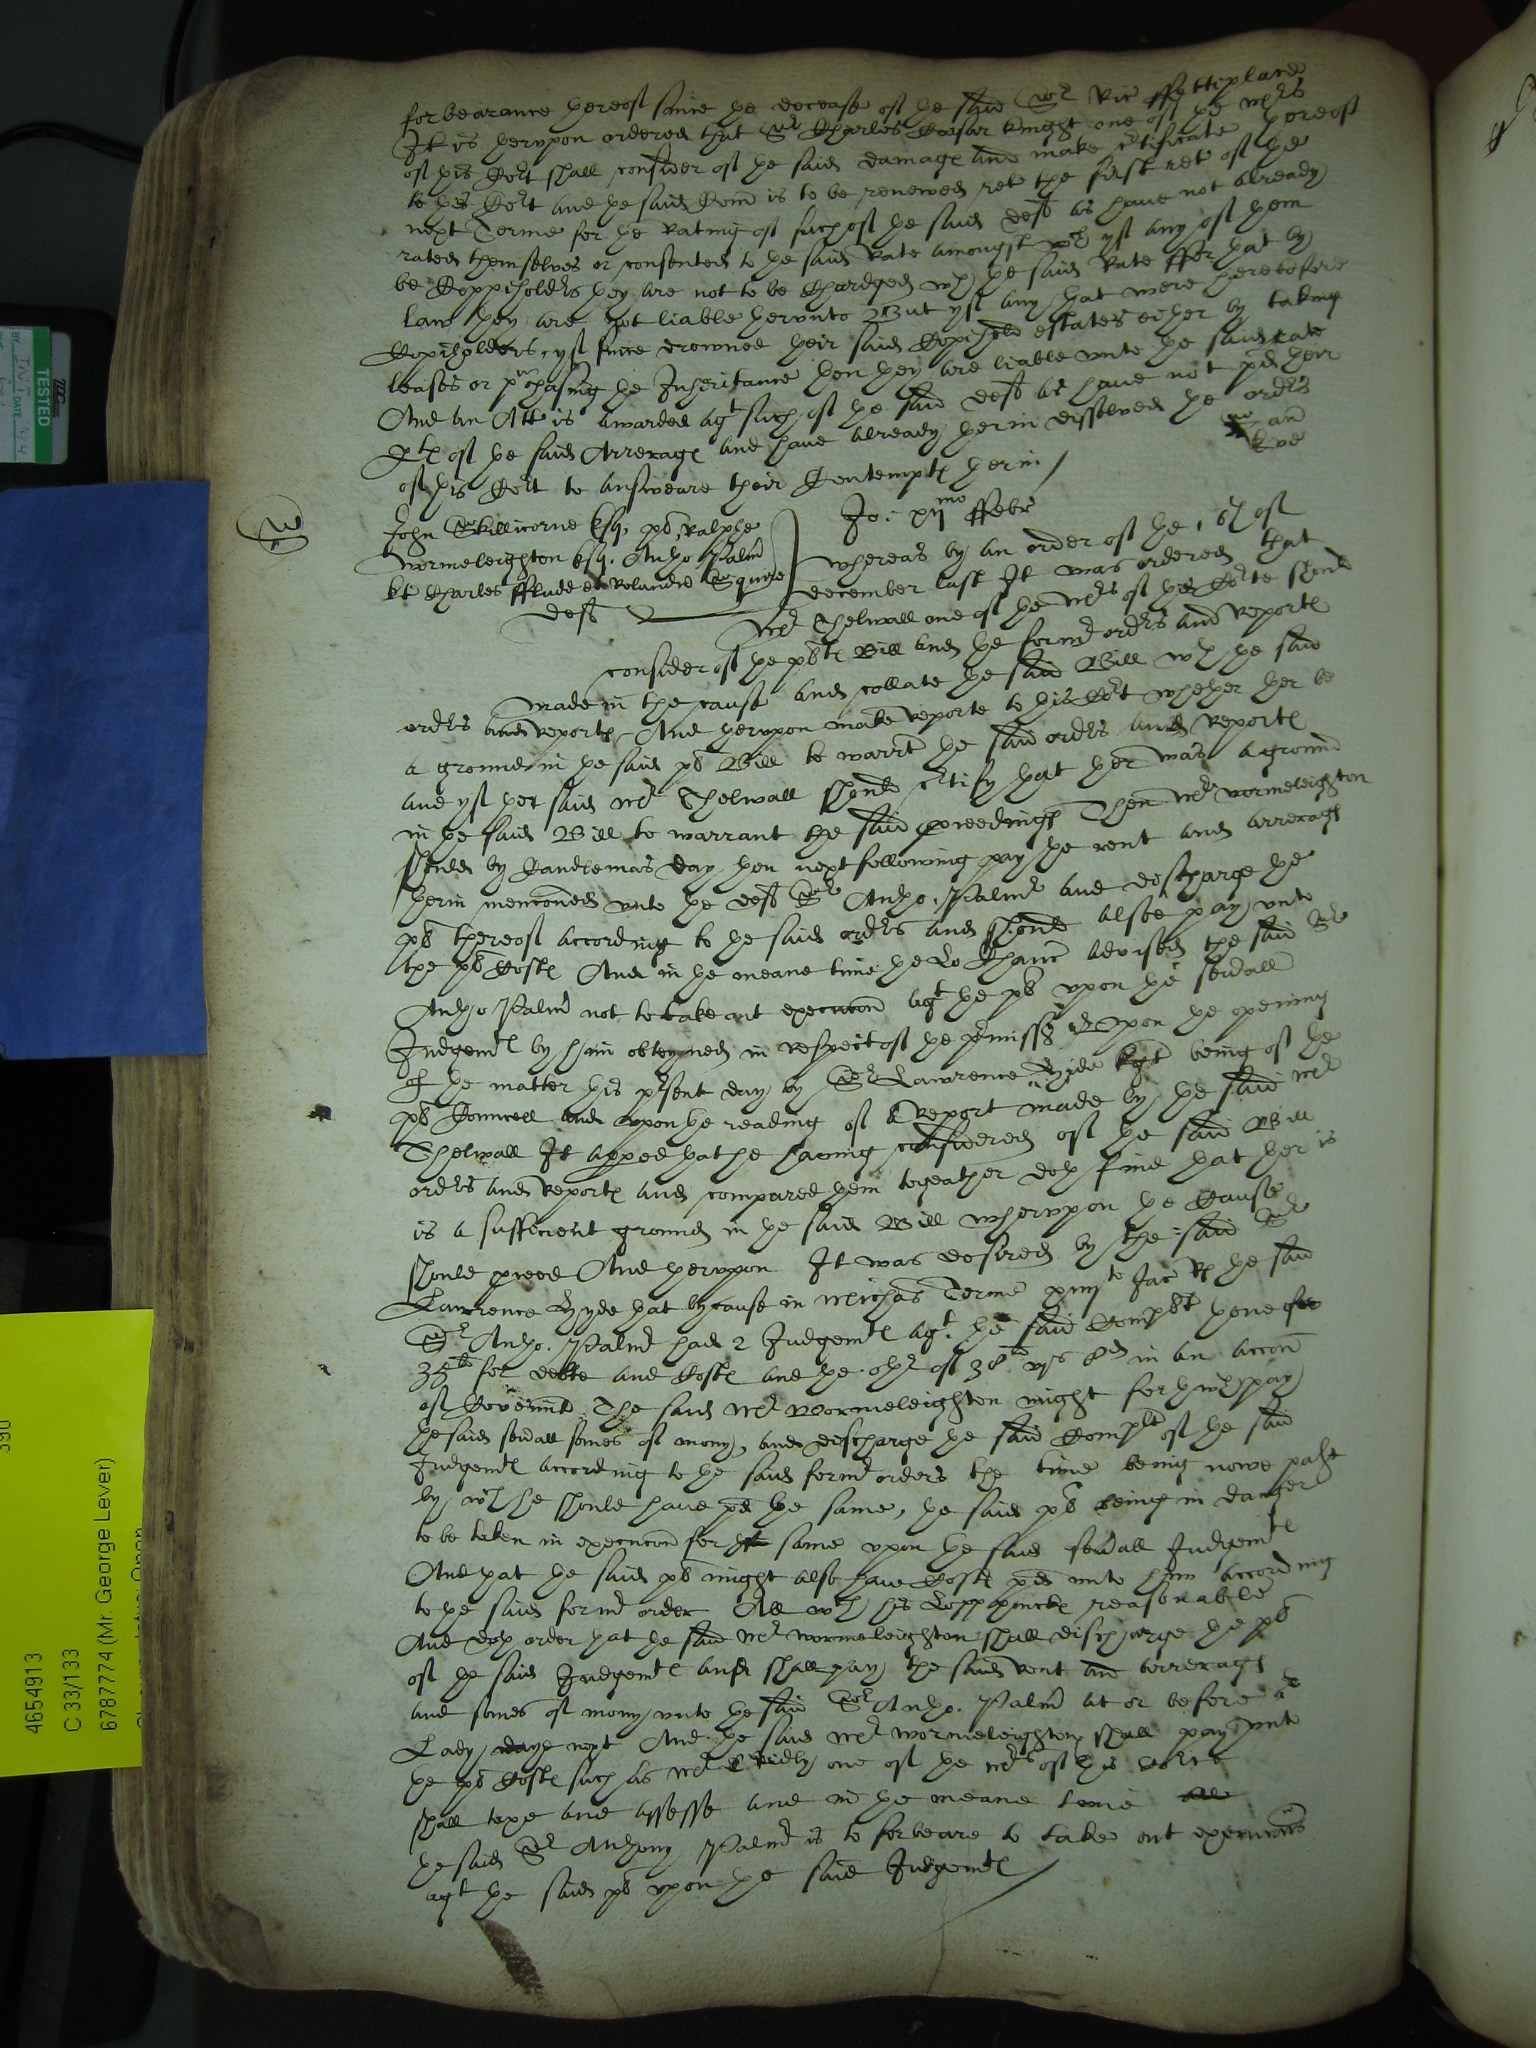 forbearance hereof since the decease of the said Sr Ric ffettiplace
It is hervpon ordered that Sr Charles Cæsar knight one of the Mrs
of this Cort shall consider of the said damage and make certificate thereof
to this Cort and the said Com is to be renewed ret the first ret of the
next Terme for the Rating of such of the said deftes as have not already
rated themselves or consented to the said Rate amongst wch yf any of them
be Coppiholders they are not to be Chardged wth the said Rate ffor that by
law they are not liable thervnto But yf any that were heretofore
Copiholders, yf since drowned their said Copihold estates either by taking
leases or purchasing the Inheritance then they are liable vnto the said rate
And an Att is awarded agt such of the said deftes as have not pd their
ptes of the said Arrerages and have already herin dissolved the orders
of this Cort to answeare their Contemptes herin /
John Skillicorne Esq, plt, Ralphe
Wormeleighton Esq. Antho Palmr
kt Charles ffludd et Rolande Squire
deftes
Jo: xijmo ffebr
whereas by an order of the 16th of
december last It was ordered that
Mr Thelwall one of the Mrs of this Corte should
consider of the pltes Bill and the former orders and Reportes
made in the cause and collate the said Bill wth the said
orders and Reportes And thervpon make Reporte to this Cort whether ther be
a ground in the said plt Bill to warrt the said orders and Reportes
and yf the said Mr Thelwall should certify that ther was a ground
in the said Bill to warrant the said proceedinges Then Mr Wormeleighton
should by Candlemas day then next following pay the rent and arrerages
therin menconed vnto the deft Sr Antho. Palmr and discharge the
plt thereof according to the said orders and should alsoe pay vnto
the plt Costes And in the meane time the Lo Chanc advised the said Sr
Antho Palmr not to take out execucon agt the plt vpon the seuerall
Judgemtes by him obteyned in respect of the premisses Upon the opening
of the matter this present day by Sr Lawrence Hyde knt being of the
plt Councell and vpon the reading of a Report made by the said Mr
Thelwall It appeared that he having considered of the said Bill
orders and Reportes and compared them together doth find that ther is
is a sufficient ground in the said Bill whervpon the Cause
should proceed And thervpon It was desired by the said Sr
Lawrence Hyde that bycause in Michas Terme Jac R the said
Sr Antho. Palmr had 2 Judgemtes agt. the said Complt thone for
35li for debte and Costes and the other of 38li vjs 8d in an accon
of Covennt The said Mr Wormeleighton might forthwth pay
the said seuerall somes of mony, and discharge the said Complt of the said
Judgemtes according to the said former orders the time being nowe past
by wch he should have pd the same, the said plt being in danger
to be taken in execucon for the same vpon the said seuerall Judgemtes
And that the said plt might also have Costes pd vnto him according
to the said former order All wch his Lopp thinckes reasonable
And doth order that the said Mr Wormeleighton shall discharge the plt
of the said Judgemtes and shall pay the said rent and arrerages
and somes of mony vnto the said Sr Antho. Palmr at or before or
Lady day next And the said Mr Wormeleighton shall pay vnto
the plt Costes such as Mr one of the Mrs of this Corte
shall taxe and assesse and in the meane time
the said Sr Anthony Palmr is to forbeare to take out execucons
agt the said plt vpon the said Judgemtes /
TESTED
4654913
C 33/133
6787774 (Mr. George Lever)
390